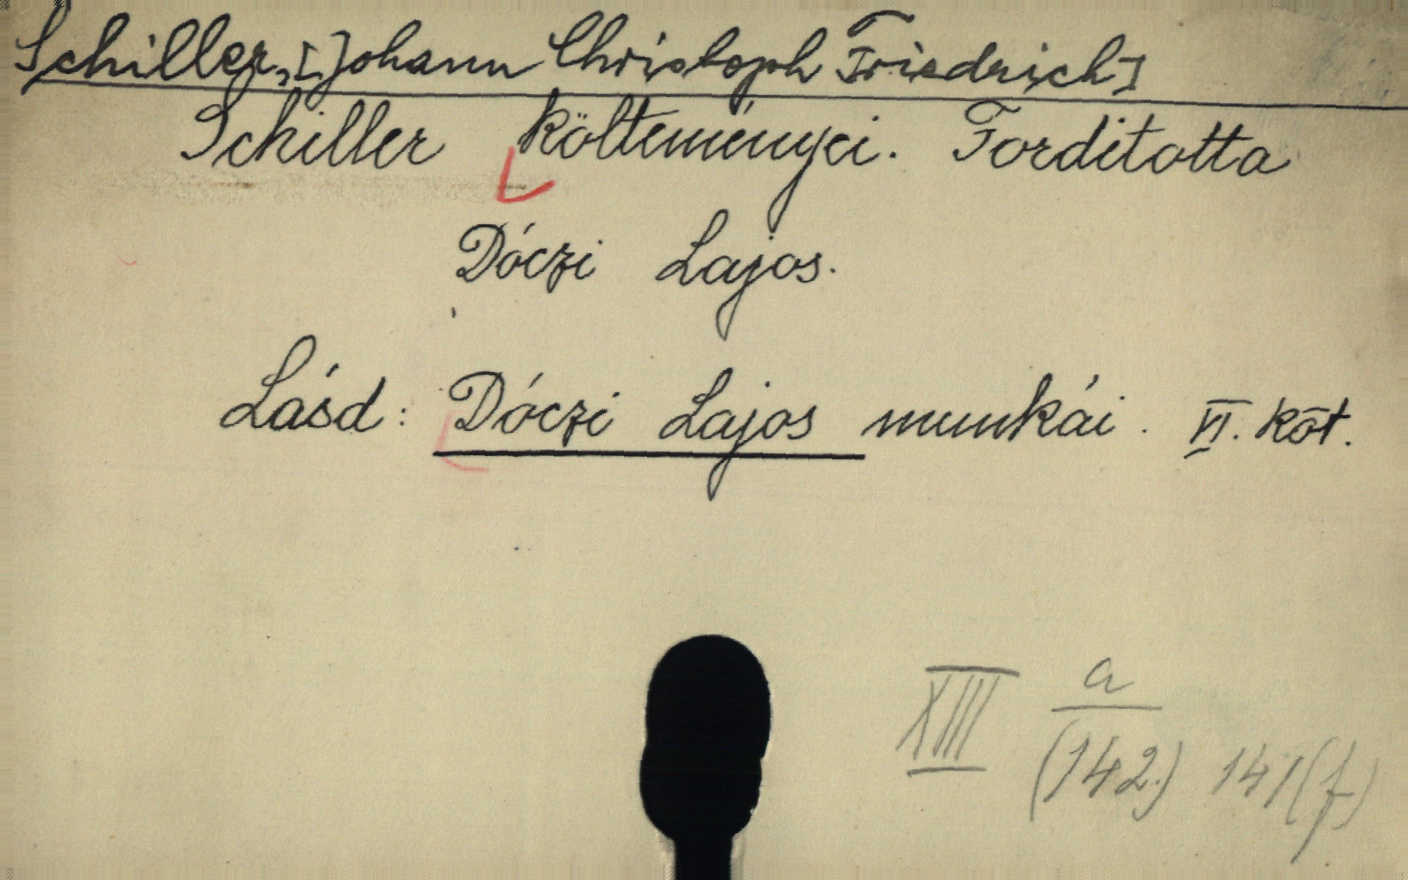 Schiller, [Johann Christoph Friedrich]
Schiller költeményei. Forditotta
Dóczi Lajos.
Lásd: Dóczi Lajos munkái. VI. köt.
XIII a/(142.) 141(f)